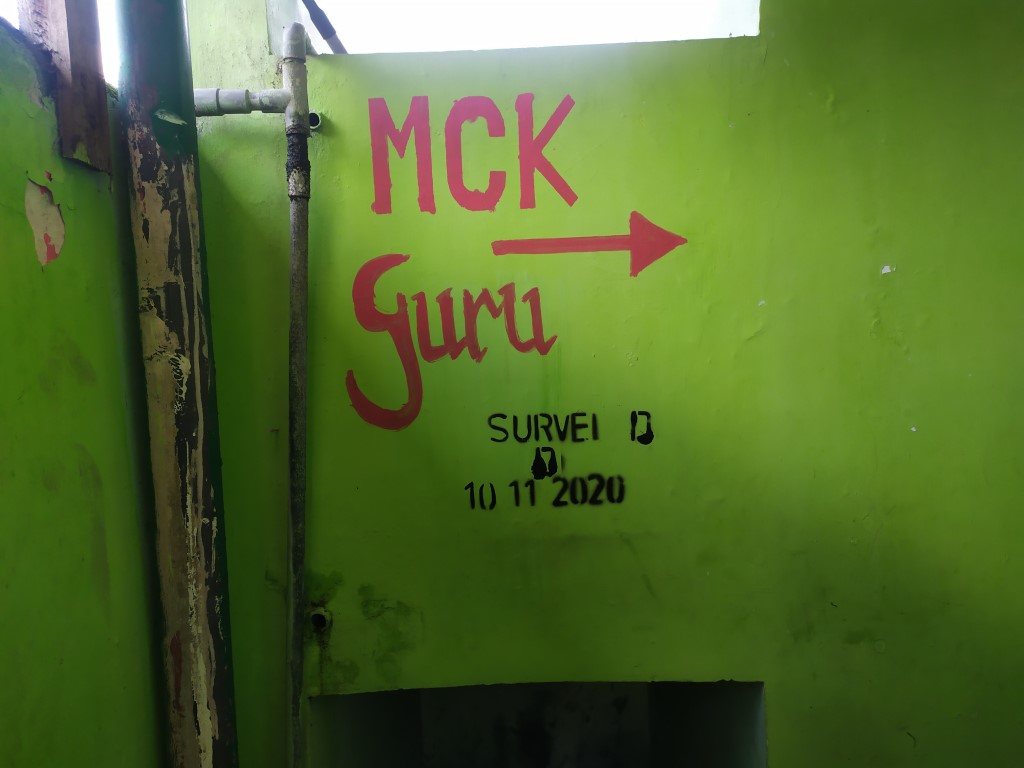 MCK
guru
SURVEI 13
10 11 2020